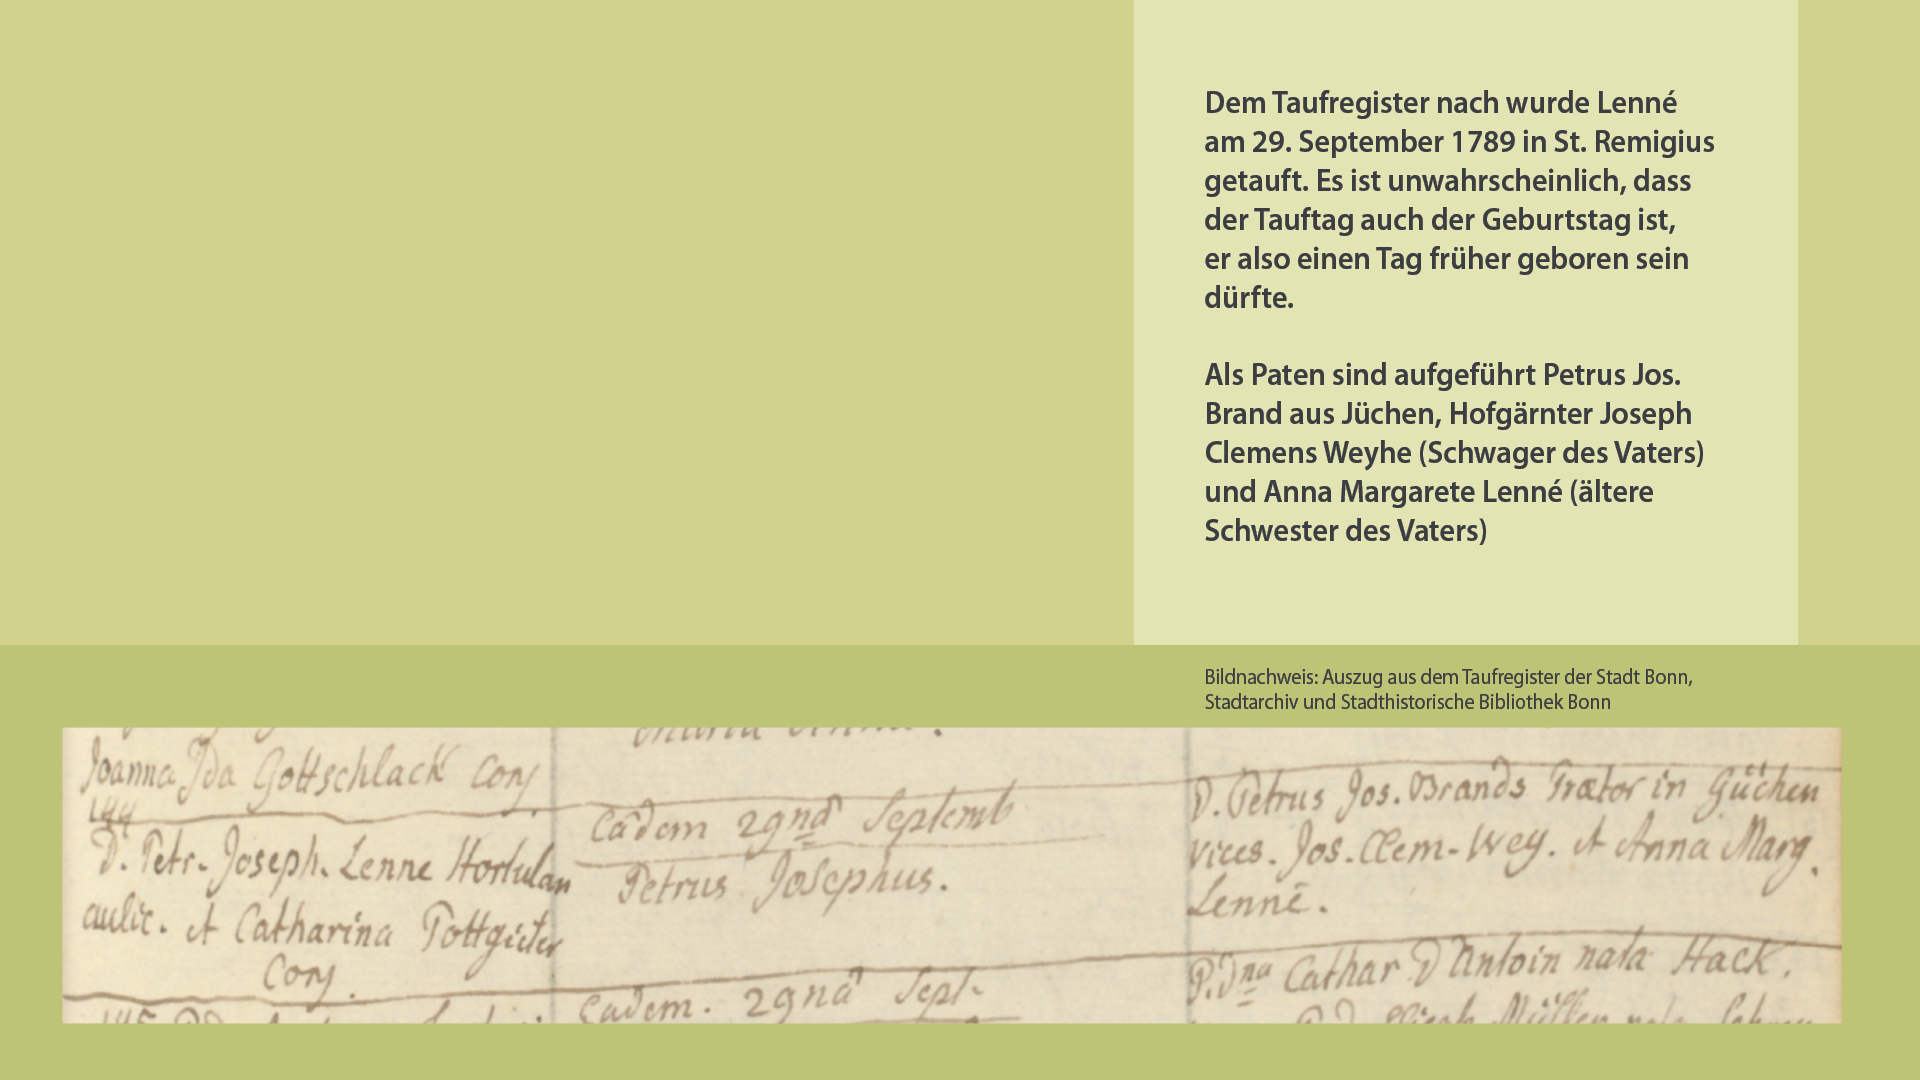 Dem Taufregister nach wurde Lenné
am 29. September 1789 in St. Remigius
getauft. Es ist unwahrscheinlich, dass
der Tauftag auch der Geburtstag ist,
er also einen Tag früher geboren sein
dürfte.
Als Paten sind aufgeführt Petrus Jos.
Brand aus Jüchen, Hofgärnter Joseph
Clemens Weyhe (Schwager des Vaters)
und Anna Margarete Lenné (ältere
Schwester des Vaters)
Bildnachweis: Auszug aus dem Taufregister der Stadt Bonn,
Stadtarchiv und Stadthistorische Bibliothek Bonn
Joanna Ida Gottschlack Conj
144
D. Petr. Joseph. Lenne Hortulan
aulic. et Catharina Pottgieter
Conj.
Eadem 29na Septemb
Petrus Josephus.
Eadem. 29na Sept.
D. Petrus Jos. Brands Prætor in Güchen
vices. Jos. Clem. Wey. et Anna Marg.
Lenné.
Cathar D'Antoin nata Hack.